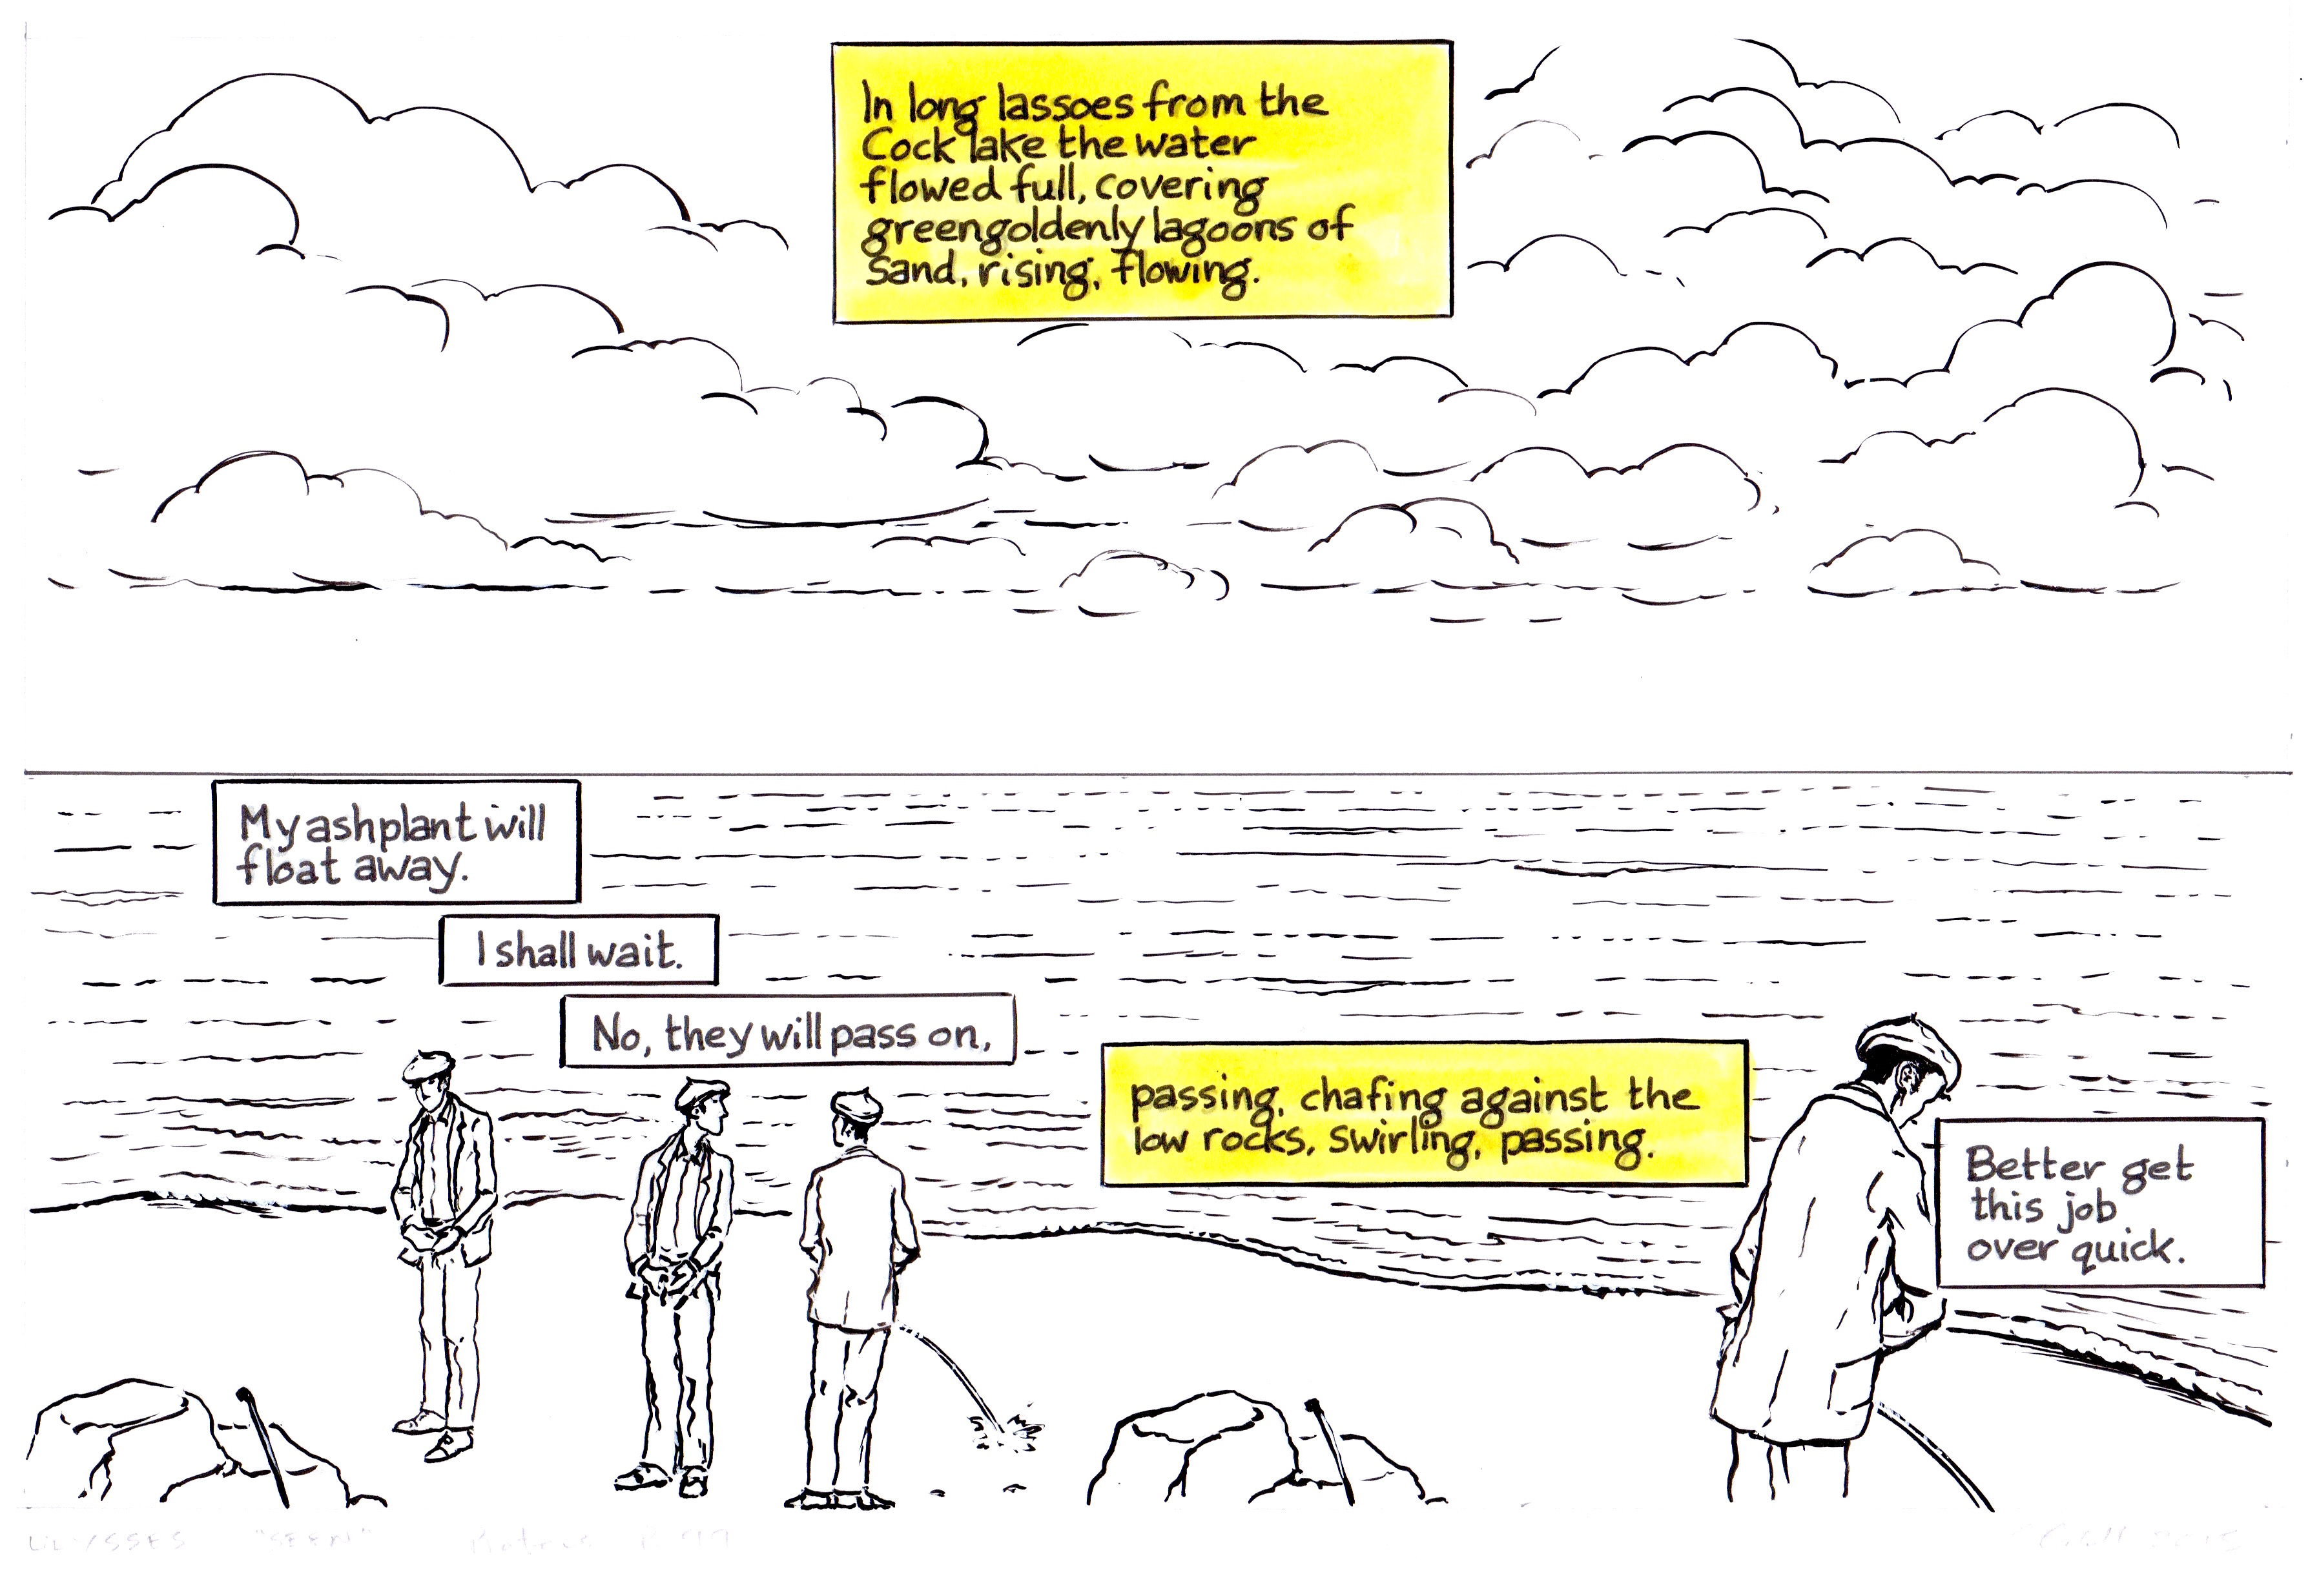 In long lassoes from the
Cock lake the water
flowed full, covering
greengoldenly lagoons of
sand, rising, flowing.
My ashplant will
float away.
I shall wait.
No, they will pass on,
passing, chafing against the
low rocks, swirling, passing.
Better get
this job
over quick.
ULYSSES "SEEN"